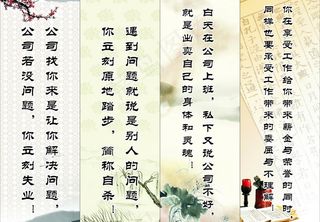 你在享受工作给你带来薪金与荣誉的同时
同样也要承受工作带来的委屈与不理解！
白天在公司上班，私下又说公司不好，
就是出卖自己的身体和灵魂！
遇到问题就说是别人的问题，
你立刻原地踏步，简称自杀！
公司找你来是让你解决问题，
公司若没问题，你立刻失业！